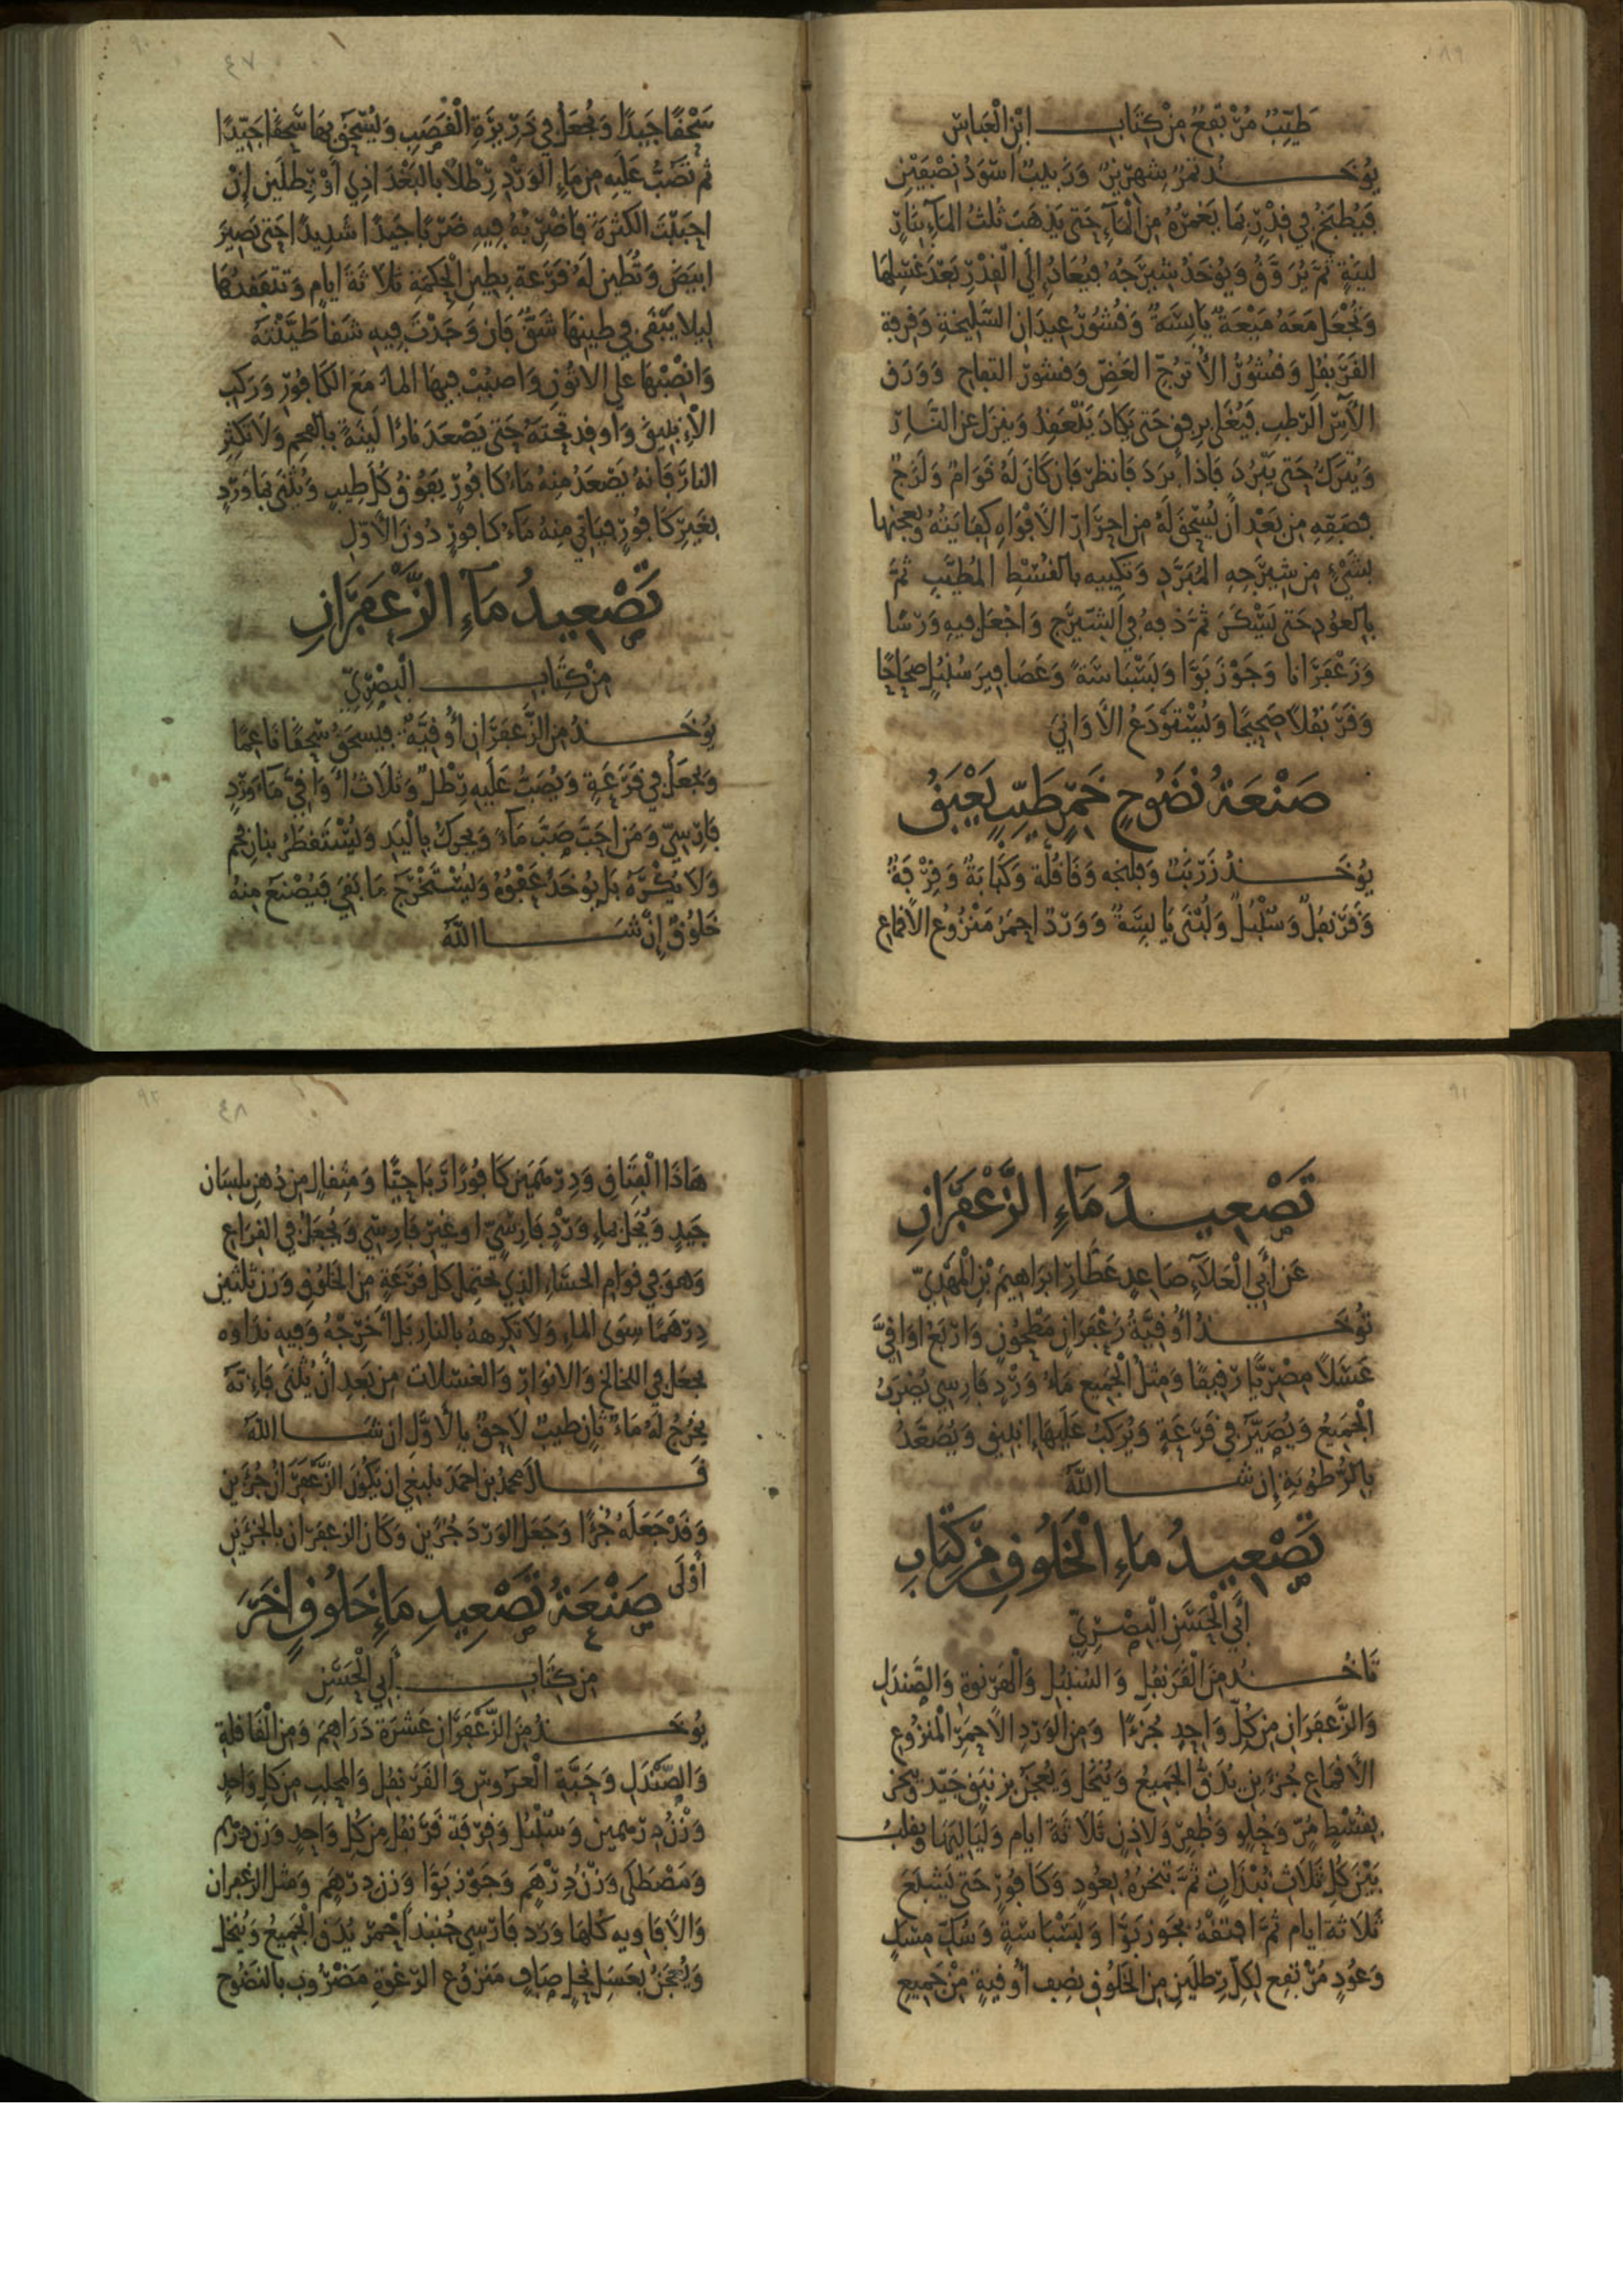 طيب مرتفع من كتاب ابن العباس
يؤخذ تمر شهريز وزبيب أسود نصفين
فيطبخ في قدر بما يغمره من الماء حتى يذهب ثلث الماء بنار
لينة ثم يروق ويؤخذ شيرجه فيعاد إلى القدر بعد غسلها
وتجعل معه ميعة يابسة وقشور عيدان السليخة وقرفة
القرنفل وقشور الأترج الغض وقشور التفاح وورق
الآس الرطب فيغلى برفق حتى يكاد ينعقد وينزل عن النار
ويترك حتى يبرد فإذا برد فانظر فإن كان له قوام ولزج
فصفه من بعد أن يسحق له من أحرار الأفواه كفايته ويعجنها
بشيء من شيرجه المبرد وتكبيه بالقسط المطيب ثم
بالعود حتى يسكن ثم دفه في الشيرج واجعل فيه ورسا
وزعفرانا وجوزبوا وبسباسة وعصافير سنبل صحاحا
وقرنفلا صحيحا ويستودع الأواني
صنعة نضوح خمر طيب يعبق
يؤخذ زرنب وفلنجه وقاقلة وكبابة وقرفة
وقرنفل وسنبل ولبنى يابسة وورد أحمر منزوع الأقماع
٤٧
سحقا جيدا ويجعل في ذريرة القصب ويسحق بها سحقا جيدا
ثم تصب عليه من ماء الورد رطلا بالبغدادي أو رطلين إن
أحببت الكثرة فاضربه فيه ضربا جيدا شديدا حتى يصير
أبيض وتطين له قرعة بطين الحكمة ثلاثة أيام وتتفقدها
ليلا يبقى في طينها شق فإن وجدت فيه شقا طينته
وانصبها على الاتون واصبب فيها الماء مع الكافور وركب
الإنبيق وأوقد تحته حتى يصعد نارا لينة بالفحم ولا تكثر
النار فإنه يصعد منه ماء كافور يفوق كل طيب ويثنى بماورد
بغير كافور فيأتي منه ماء كافور دون الأول
تصعيد ماء الزعفران
من كتاب البصري
يؤخذ من الزعفران أوقية فيسحق سحقا ناعما
ويجعل في قرعة ويصب عليه رطل وثلاث أواقي ماء ورد
فارسي ومن أحب صب ماء ويحرك باليد ويستقطر بنار فحم
ولا يكره بل يؤخذ عفوه ويستخرج ما بقي فيصنع منه
خلوق إن شا الله
تصعيد ماء الزعفران
عن أبي العلاء صاعد عطار ابراهيم بن المهدي
تؤخذ أوقية زعفران مطحون وأربع أواقي
عسلا مصريا رقيقا ومثل الجميع ماء ورد فارسي يضرب
الجميع ويصير في قرعة ويركب عليها إنبيق ويصعد
بالرطوبة إن شا الله
تصعيد ماء الخلوق من كتاب
أبي الحسن البصري
تأخذ من القرنفل والسنبل والهرنوة والصندل
والزعفران من كل واحد جزءا ومن الورد الأحمر المنزوع
الأقماع جزءين يدق الجميع وينخل ويعجن بزنبق جيد ويبخر
بقسط مر وحلو وظفر ولاذن ثلاثة أيام ولياليها ويقلب
بين كل ثلاث نبذات ثم تبخره بعود وكافور حتى يشبع
ثلاثة أيام ثم افتقه بجوزبوا وبسباسة وسك مسك
وعود مرتفع لكل رطلين من الخلوق نصف أوقية من جميع
٤٨
هاذا الفتاق ودرهمين كافورا رباحيا ومثقال من دهن بلسان
جيد ويحل بماء ورد فارسي أو غير فارسي ويجعل في القراع
وهو في قوام الحساء الذي يحتمل كل قرعة من الخلوق وزن ثلثين
درهما سوى الماء ولا تكرهه بالنار بل أخرجه وفيه نداوه
يجعل في اللخالخ والانوار والغسلات من بعد أن يثنى فإنه
يخرج له ماء ثان طيب لاحق بالأول ان شا الله
قال محمد بن احمد ينبغي ان يكون الزعفران جزءين
وقد جعله جزءا وجعل الورد جزءين وكان الزعفران بالجزءين
أولى
صنعة تصعيد ماء خلوق اخر
من كتاب أبي الحسن
يؤخذ من الزعفران عشرة دراهم ومن القاقلة
والصندل وحبة العروس والقرنفل والمحلب من كل واحد
وزن درهمين وسنبل وقرفة قرنفل من كل واحد وزن درهم
ومصطكى وزن درهم وجوزبوا وزن درهم ومثل الزعفران
والأفاويه كلها ورد فارسي جنبذ أحمر يدق الجميع وينخل
ويعجن بعسل نحل صاف منزوع الرغوة مضروب بالنضوح